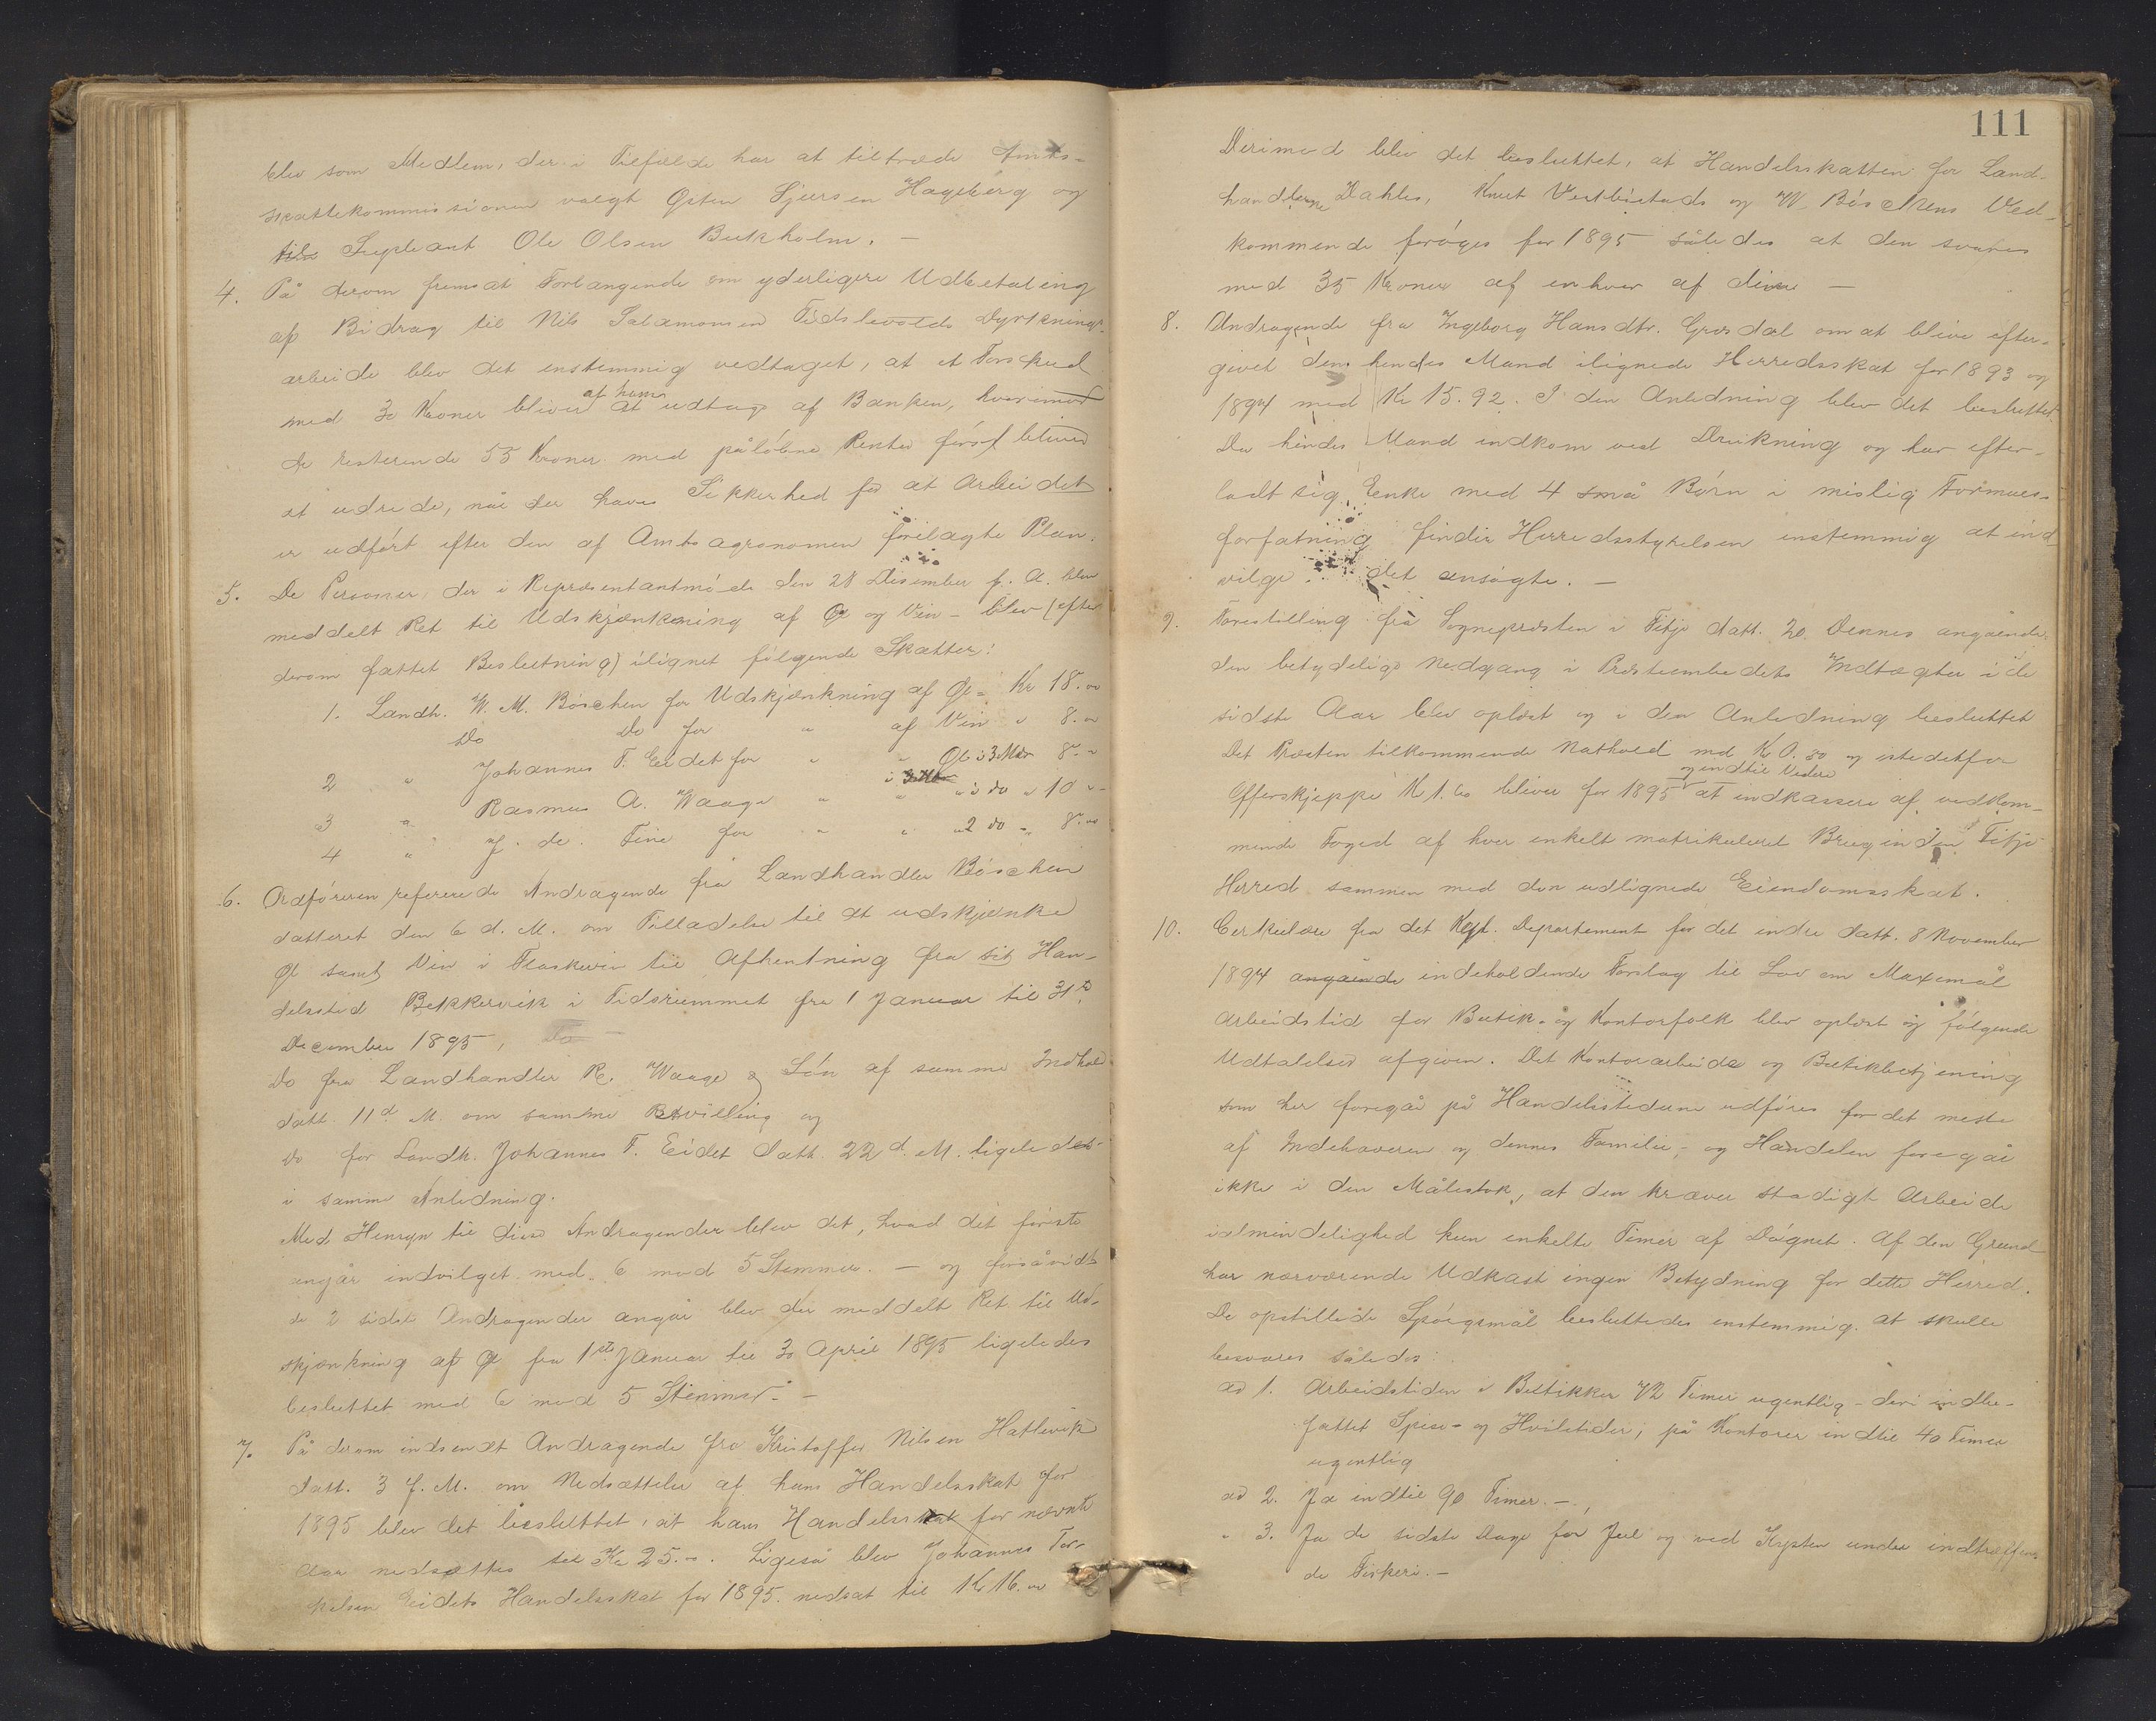 blev som Medlem, der i Tilfælde har at tiltræde Amts-
skattekommissionen valgt Østen Sjursen Hageberg og
Supleant Ole Olsen Bukholm. —
4. På derom fremsat Forlangende om yderligere Udbetaling
af Bidrag til Nils Salamonsen Tidslevolds Dyrknings-
arbeide blev det enstemmig vedtaget, at et Forskud
med 30 Kroner bliver af ham at udtage af Banken, hvorimod
de resterende 55 Kroner med påløbne Renter først bliver
at udrede, når der haves Sikkerhed for at Arbeidet
er udført efter den af Amtsagronomen forelagte Plan.
5. De Personer, der i Repræsentantmøde den 28 Desember f. A. blev
meddelt Ret til Udskjænkning af Øl og Vin – blev (efter
derom fattet Beslutning) ilignet følgende Skatter:
1. Landh. W. M. Böschen for Udskjænkning af Øl – Kr 18.00
Do Do for " af Vin " 8.00
2 " Johannes T. Eidet for " " Øl i 3 Mdr 8.00
3 " Rasmus A. Waage " " " i do " 10 "
4 " J. de. Fine for " " " 2 do " 8.00
6. Ordføreren refererede Andragende fra Landhandler Böschen
datteret den 6 d. M. om Tilladelse til at udskjænke
Øl samt Vin i Flaskevis til Afhentning fra sit Han-
delssted Bekkervik i Tidsrummet fra 1 Januar til 31te
December 1895,
Do fra Landhandler R. Waage & Søn af samme Indhold
datt. 11 d. M. om samme Bevilling og
Do for Landh. Johannes T. Eidet datt. 22 d. M. ligeledes
i samme Anledning.
Med Hensyn til disse Andragender blev det, hvad det første
angår indvilget med 6 mod 5 Stemmer. — og forsåvidt
de 2 sidste Andragender angår blev der meddelt Ret til Ud-
skjænkning af Øl fra 1ste Januar til 30 April 1895 ligeledes
besluttet med 6 mod 5 Stemmer. —
7. På derom indsendt Andragende fra Kristoffer Nilsen Hatlevik
datt. 3 f. M. om Nedsættelse af hans Handelsskat for
1895 blev det besluttet, at hans Handelsskat for nævnte
Aar nedsættes til Kr 25.00. Ligeså blev Johannes Tor-
kelsen Eidets Handelsskat for 1895 nedsat til Kr 16.00
111
Derimod blev det besluttet, at Handelsskatten for Land-
handlerne Dahles, Knut Vestbøstads og W. Böschens Ved-
kommende forøges for 1895 således at den svares
med 35 Kroner af enhver af disse —
8. Andragende fra Ingeborg Hansdtr. Grosdal om at blive efter-
givet den hendes Mand ilignede Herredsskat for 1893 og
1894 med Kr 15.92. I den Anledning blev det besluttet
Da hendes Mand indkom ved Drukning og har efter-
ladt sig Enke med 4 små Børn i mislig Formues-
forfatning finder Herredsstyrelsen enstemmig at ind
vilge det ansøgte. —
9. Forestilling fra Sognepræsten i Fitje datt. 20 Dennes angaaende
den betydelige Nedgang i Præsteembedets Indtægter i de
sidste Aar blev oplæst og i den Anledning besluttet
Det Præsten tilkommende Nathold med Kr 0.80 og istedetfor
Offerskjeppe Kr 1.60 bliver for 1895 og indtil Videre at indkassere af vedkom-
mende Foged af hver enkelt matrikuleret Brug inden Fitje
Herred sammen med den udlignede Eiendomsskat.
10. Cirkulære fra det Kgl. Departement for det indre datt. 8 November
1894 angående indeholdende Forslag til Lov om Maximal
Arbeidstid for Butik- og Kontorfolk blev oplæst og følgende
Udtalelse afgiven. Det Kontorarbeide og Butikbetjening
som her foregår på Handelsstederne udføres for det meste
af Indehaveren og dennes Familie, og Handelen foregår
ikke i den Målestok, at den kræver stadigt Arbeide
i almindelighed kun enkelte Timer af Døgnet. Af den Grund
har nærværende Udkast ingen Betydning for dette Herred.
De opstillede Spørgsmål besluttedes enstemmig at skulle
besvares således:
ad 1. Arbeidstiden i Butikker 72 Timer ugentlig – deri indbe-
fattet Spise- og Hviletider; på Kontorer indtil 40 Timer
ugentlig
ad 2. Ja indtil 90 Timer. —
" 3. Ja de sidste Dage før Jul og ved Kysten under indtræffen-
de Fiskeri. —